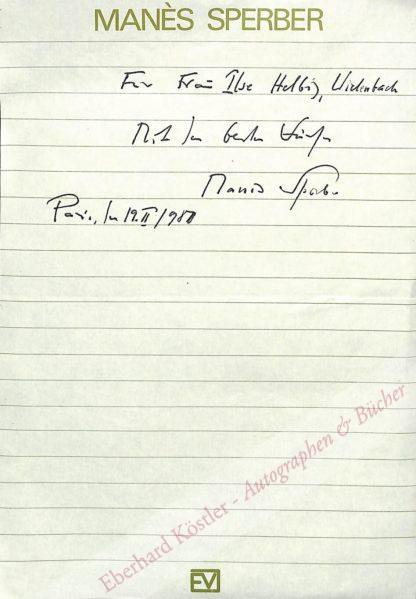 MANÈS SPERBER
Für Frau Ilse Helbig,
Mit den besten Grüßen
Manès Sperber
Paris, den 12.II/1980
Eberhard Köstler - Autographen & Bücher
EV